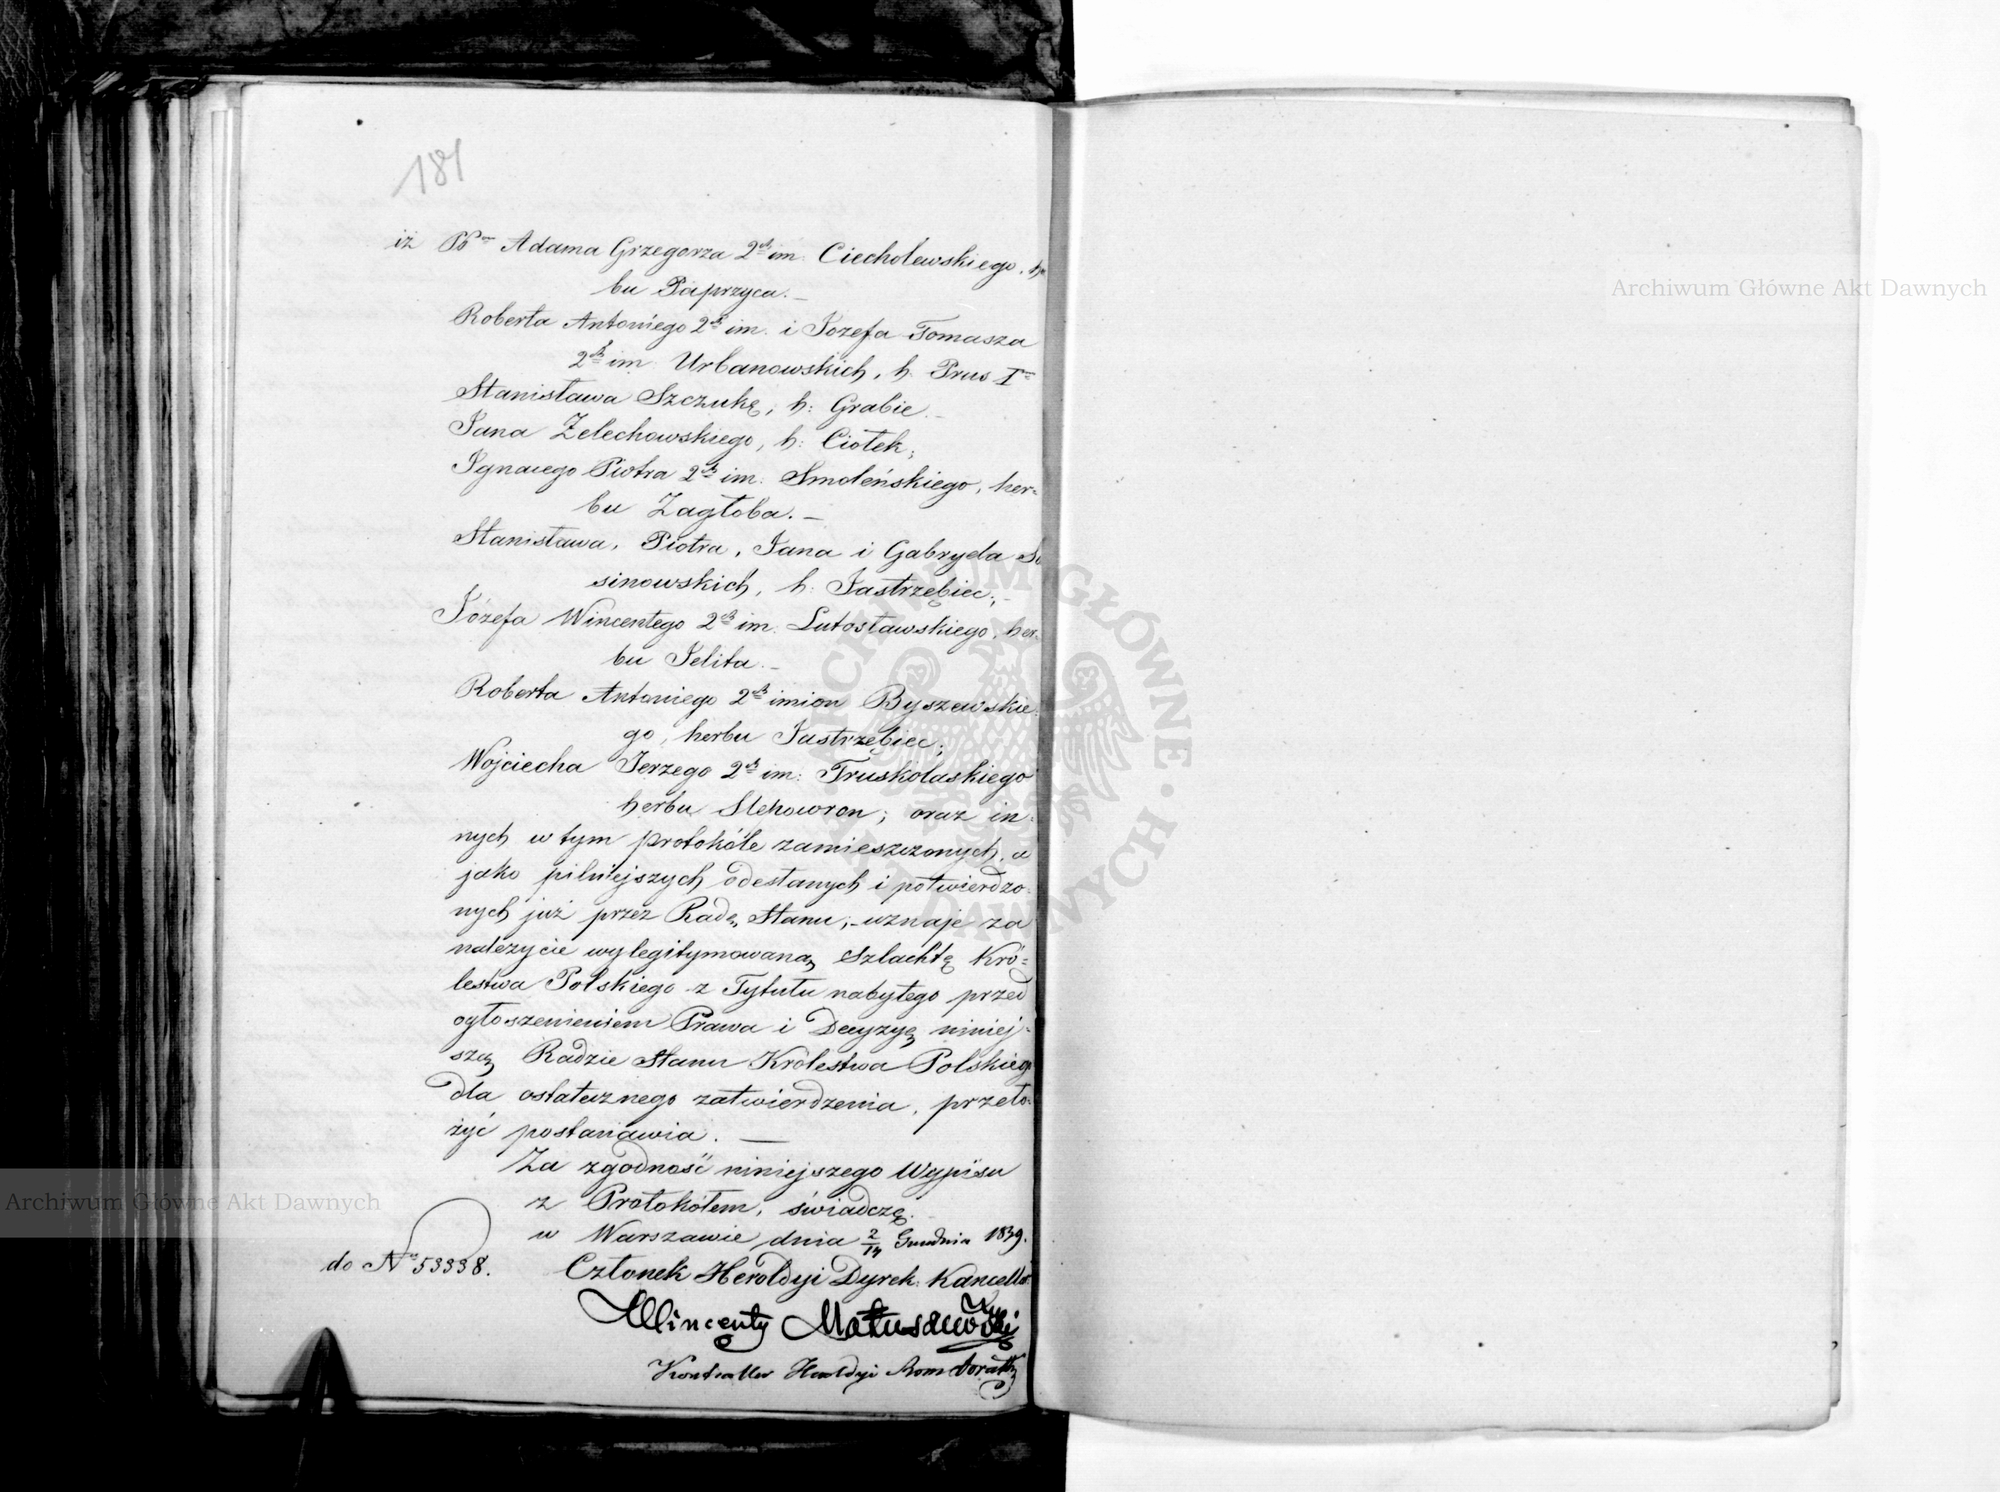 181
iż PP. Adama Grzegorza 2ch im. Ciecholewskiego, her
bu Paprzyca. –
Roberta Antoniego 2ch im. i Józefa Tomasza
2ch im. Urbanowskich, h. Prus Imo
Stanisława Szczukę, h: Grabie. –
Jana Zelechowskiego, h: Ciołek;
Ignacego Piotra 2ch im. Smoleńskiego, her=
bu Zagłoba. –
Stanisława, Piotra, Jana i Gabryela So
sinowskich, h. Jastrzębiec; –
Józefa Wincentego 2ch im. Lutosławskiego, her=
bu Jelita. –
Roberta Antoniego 2ch imion Byszewskie
go, herbu Jastrzębiec;
Wojciecha Jerzego 2ch im: Truskolaskiego
herbu Slepowron; oraz in=
nych w tym protokóle zamieszczonych, a
jako pilniejszych odesłanych i potwierdzo=
nych już przez Radę Stanu, – uznaje za
należycie wylegitymowaną Szlachtę Kró=
lestwa Polskiego z Tytułu nabytego przed
ogłoszenieniem Prawa i Decyzyę niniej=
szą Radzie Stanu Królestwa Polskiego
dla ostatecznego zatwierdzenia, przeło=
żyć postanawia. –
Za zgodność niniejszego Wypisu
z Protokółem, świadczę. –
w Warszawie dnia 2/14 Grudnia 1839.
do No 53338.
Członek Heroldyi Dyrek: Kancella
Wincenty Matuszewski
Kontroller Heroldyi
Archiwum Główne Akt Dawnych
Archiwum Główne Akt Dawnych
ARCHIWUM GŁÓWNE AKT DAWNYCH